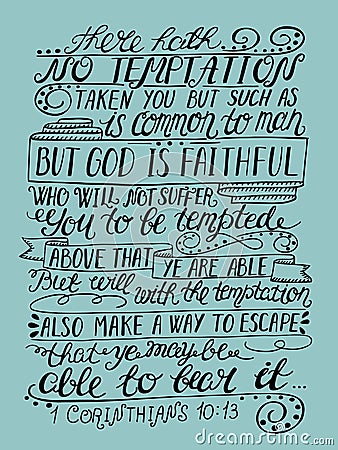 There hath
NO TEMPTATION
TAKEN YOU BUT SUCH AS
is common to man
BUT GOD IS FAITHFUL
WHO WILL NOT SUFFER
You to be tempted
ABOVE THAT YE ARE ABLE
But will with the temptation
ALSO MAKE A WAY TO ESCAPE
that ye may be
able to bear it...
1 CORINTHIANS 10:13
dreamstime.com